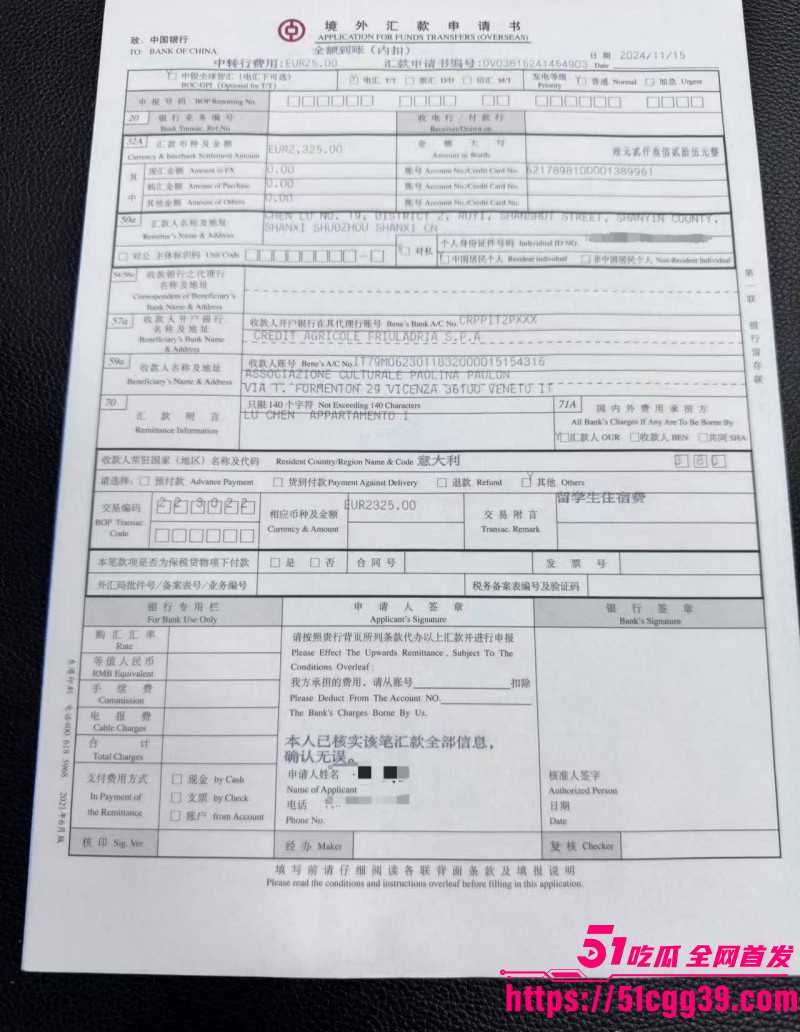 境外汇款申请书
APPLICATION FOR FUNDS TRANSFERS (OVERSEAS)
致：中国银行
TO: BANK OF CHINA
全额到账（内扣）
日期 2024/11/15
Date
中转行费用:EUR25.00
汇款申请书编号:
中银全球智汇（电汇下可选）
BOC-GPI (Optional for T/T)
电汇 T/T 票汇 D/D 信汇 M/T
发电等级
Priority
普通 Normal 加急 Urgent
申报号码 BOP Reporting No.
20 银行业务编号
Bank Transac. Ref.No
收电行/付款行
Receiver/Drawn on
32A 汇款币种及金额
Currency & Interbank Settlement Amount
EUR2,325.00
金额大写
Amount in Words
欧元贰仟叁佰贰拾伍元整
其中
现汇金额 Amount in FX
0.00
账号 Account No./Credit Card No.
6217898100001389961
购汇金额 Amount of Purchase
0.00
账号 Account No./Credit Card No.
其他金额 Amount of Others
0.00
账号 Account No./Credit Card No.
50a 汇款人名称及地址
Remitter's Name & Address
CHEN LU NO. 19, DISTRICT 2, STREET, SHANYIN COUNTY,
SHANXI SHUOZHOU SHANXI CN
对公 主体标识码 Unit Code
对私
个人身份证件号码 Individual ID NO.
中国居民个人 Resident individual 非中国居民个人 Non-Resident Individual
54/56a 收款银行之代理行
名称及地址
Correspondent of Beneficiary's
Bank Name & Address
57a 收款人开户银行
名称及地址
Beneficiary's Bank Name
& Address
收款人开户银行在其代理行账号 Bene's Bank A/C No. CRPPIT2PXXX
CREDIT AGRICOLE FRIULADRIA S.P.A
59a 收款人名称及地址
Beneficiary's Name & Address
收款人账号 Bene's A/C No. IT79M0623011832000015154316
ASSOCIAZIONE CULTURALE PAOLINA PAULON
VIA T. FORMENTON 29 VICENZA 36100 VENETO IT
70 汇款附言
Remittance Information
只限140个字符 Not Exceeding 140 Characters
LU CHEN APPARTAMENTO I
71A 国内外费用承担方
All Bank's Charges If Any Are To Be Borne By
汇款人 OUR 收款人 BEN 共同 SHA
收款人常驻国家（地区）名称及代码 Resident Country/Region Name & Code 意大利
380
请选择： 预付款 Advance Payment 货到付款 Payment Against Delivery 退款 Refund 其他 Others
交易编码
BOP Transac.
Code
223022
相应币种及金额
Currency & Amount
EUR2325.00
交易附言
Transac. Remark
留学生住宿费
本笔款项是否为保税货物项下付款 是 否 合同号 发票号
外汇局批件号/备案表号/业务编号 税务备案表编号及验证码
银行专用栏
For Bank Use Only
申请人签章
Applicant's Signature
银行签章
Bank's Signature
购汇汇率
Rate
等值人民币
RMB Equivalent
手续费
Commission
电报费
Cable Charges
合计
Total Charges
支付费用方式
In Payment of
the Remittance
现金 by Cash
支票 by Check
账户 from Account
请按照贵行背页所列条款代办以上汇款并进行申报
Please Effect The Upwards Remittance , Subject To The
Conditions Overleaf :
我方承担的费用，请从账号 扣除
Please Deduct From The Account NO.
The Bank's Charges Borne By Us.
本人已核实该笔汇款全部信息，
确认无误。
申请人姓名
Name of Applicant
电话
Phone No.
核准人签字
Authorized Person
日期
Date
核印 Sig. Ver. 经办 Maker 复核 Checker
填写前请仔细阅读各联背面条款及填报说明
Please read the conditions and instructions overleaf before filling in this application.
第一联 银行留存联
电话400 618 5968 2021年6月版
51吃瓜 全网首发
https://51cgg39.com